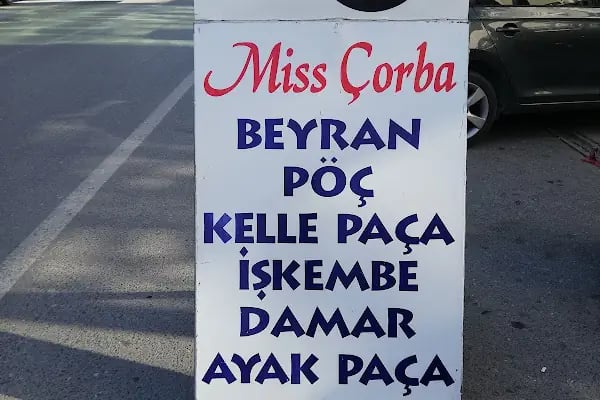 Miss Çorba
BEYRAN
PÖÇ
KELLE PAÇA
İŞKEMBE
DAMAR
AYAK PAÇA